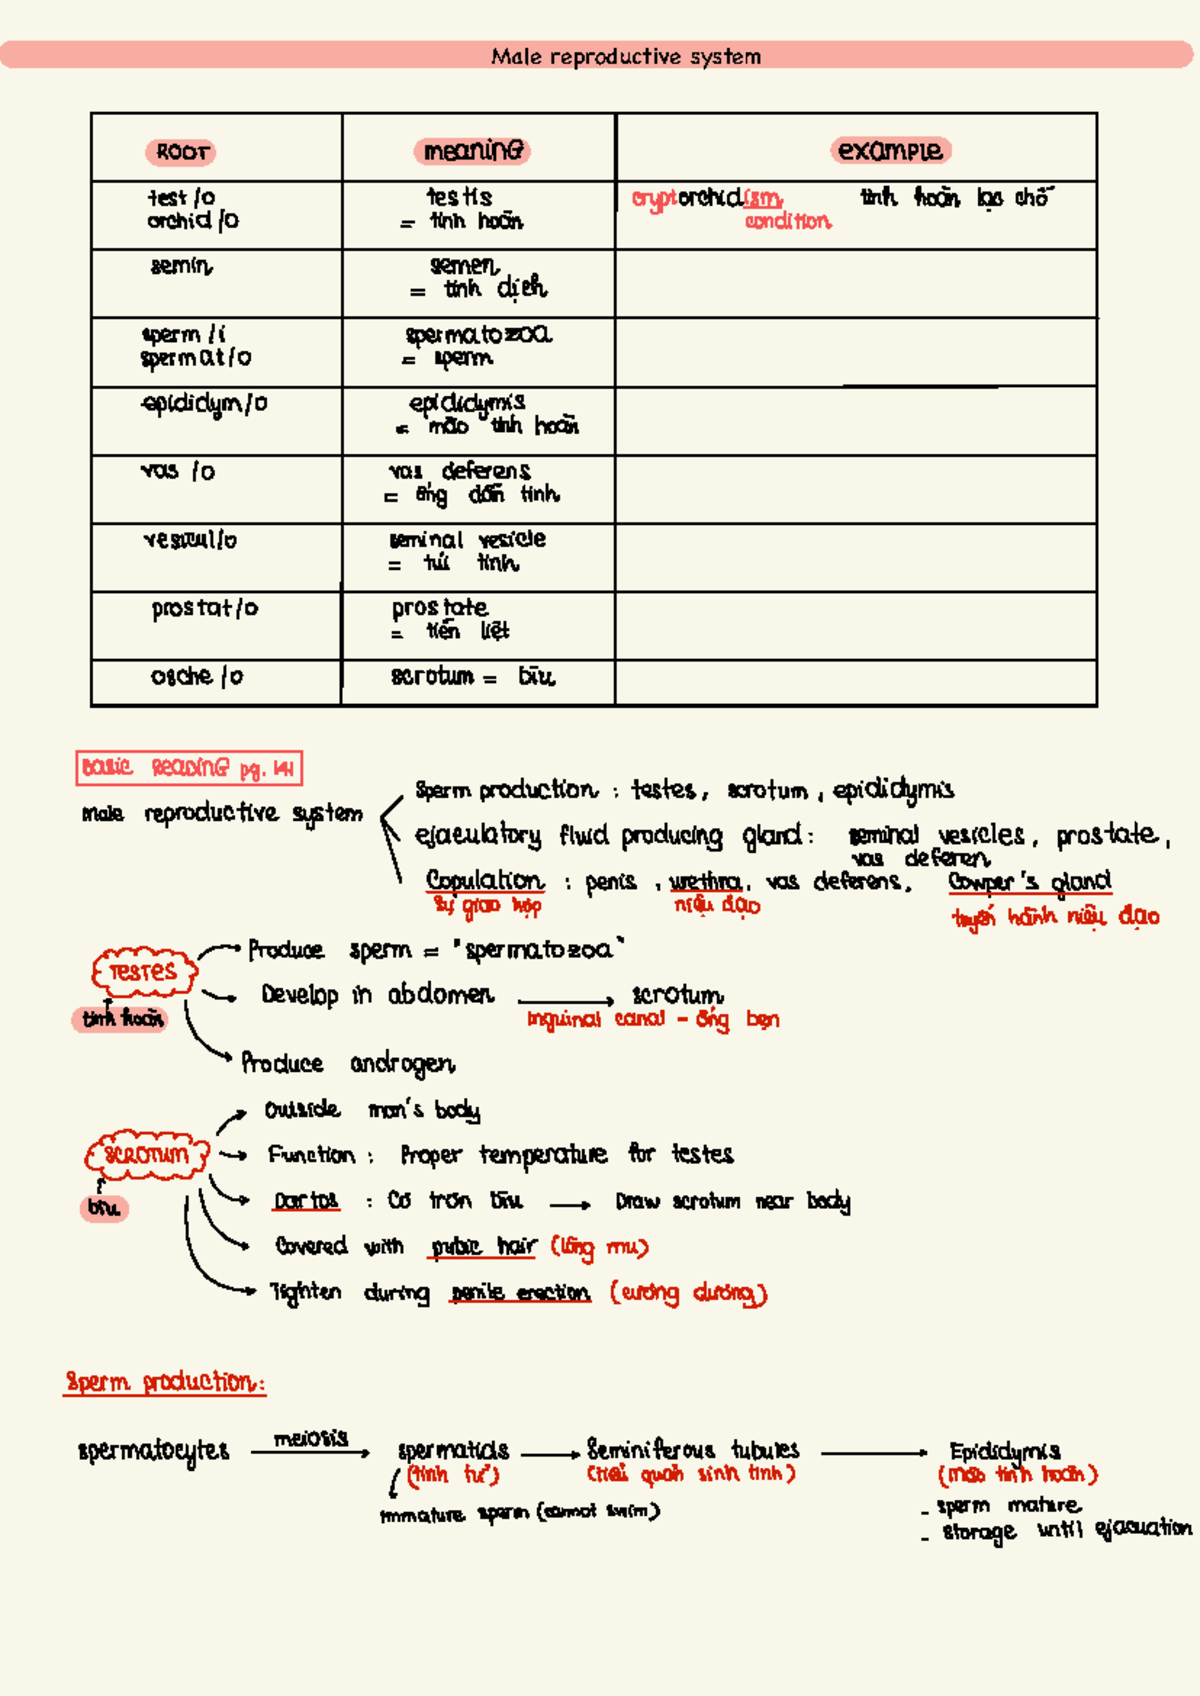 Male reproductive system
ROOT meaning example
test/o testis cryptorchidism tinh hoàn lạc chỗ
orchid/o = tinh hoàn condition
semin semen
= tinh dịch
sperm/i spermatozoa
spermat/o = sperm
epididym/o epididymis
= mào tinh hoàn
vas/o vas deferens
= ống dẫn tinh
vesicul/o seminal vesicle
= túi tinh
prostat/o prostate
= tiền liệt
osche/o scrotum = bìu
Basic Reading pg. 141
Male reproductive system
Sperm production : testes, scrotum, epididymis
ejaculatory fluid producing gland : seminal vesicles, prostate,
vas deferen
Copulation : penis, urethra, vas deferens, Cowper's gland
Sự giao hợp niệu đạo tuyến hành niệu đạo
Produce sperm = "spermatozoa"
TESTES
Develop in abdomen → scrotum
tinh hoàn
Inguinal canal - ống bẹn
Produce androgen
Outside man's body
SCROTUM
Function : Proper temperature for testes
bìu
Dartos : Cơ trơn bìu → Draw scrotum near body
Covered with pubic hair (lông mu)
Tighten during penile erection (cương dương)
Sperm production:
spermatocytes meiosis → spermatids → Seminiferous tubules → Epididymis
(tinh tử) (tiểu quản sinh tinh) (mào tinh hoàn)
Immature sperm (cannot swim)
- sperm mature
- storage until ejacuation